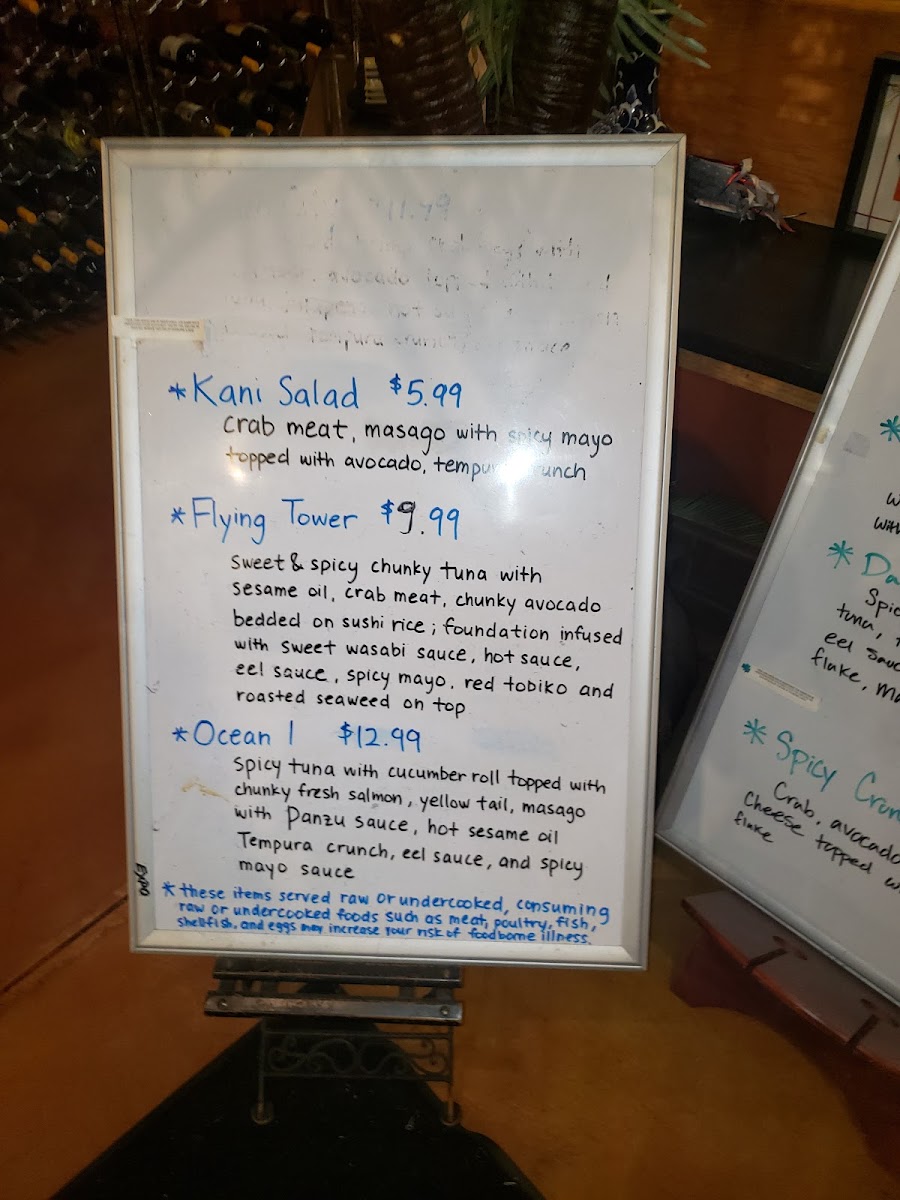 $11.99
tempura crunch
* Kani Salad $5.99
crab meat, masago with spicy mayo
topped with avocado, tempura crunch
* Flying Tower $9.99
sweet & spicy chunky tuna with
sesame oil, crab meat, chunky avocado
bedded on sushi rice; foundation infused
with sweet wasabi sauce, hot sauce,
eel sauce, spicy mayo, red tobiko and
roasted seaweed on top
* Ocean 1 $12.99
spicy tuna with cucumber roll topped with
chunky fresh salmon, yellow tail, masago
with Panzu sauce, hot sesame oil
Tempura crunch, eel sauce, and spicy
mayo sauce
* these items served raw or undercooked, consuming
raw or undercooked foods such as meat, poultry, fish,
shellfish, and eggs may increase your risk of foodborne illness.
EXPO
*
* Da
Spic
tuna,
eel sauc
flake, Ma
* Spicy Crun
Crab, avocado
cheese topped w
flake